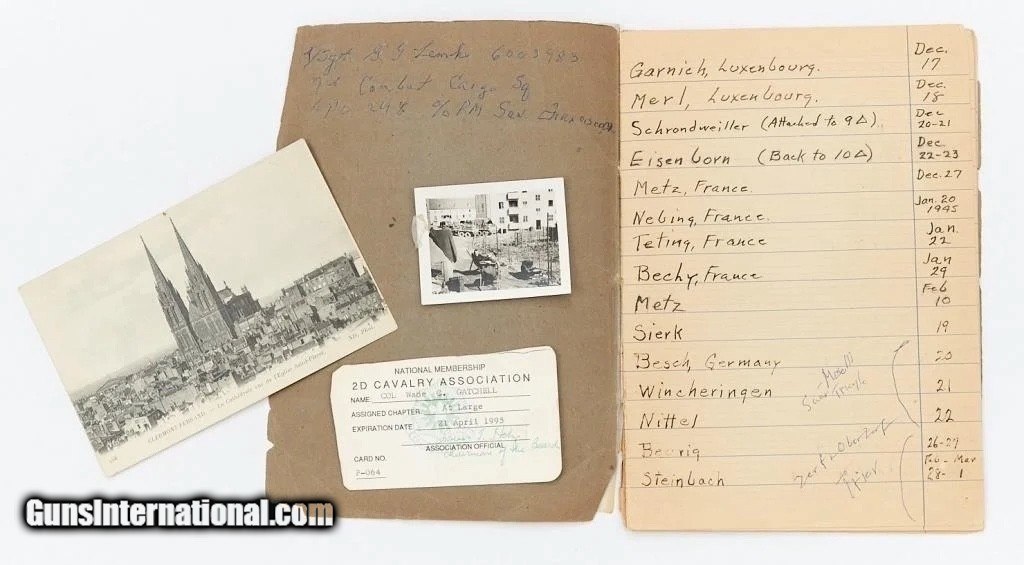 6203983
Combat Cargo Sq
248 % PM San Francisco
CLERMONT-FERRAND. — La Cathédrale vue de l'Eglise Saint-Pierre.
ND. Phot.
NATIONAL MEMBERSHIP
2D CAVALRY ASSOCIATION
NAME COL Wade C. GATCHELL
ASSIGNED CHAPTER At Large
EXPIRATION DATE 21 April 1995
ASSOCIATION OFFICIAL
Chairman of the Board
CARD NO.
P-064
Garnich, Luxenbourg. Dec. 17
Merl, Luxenbourg. Dec. 18
Schrondweiller (Attached to 9Δ). Dec 20-21
Eisenborn (Back to 10Δ) Dec. 22-23
Metz, France. Dec. 27
Nebing, France. Jan. 20 1945
Teting, France Jan. 22
Bechy, France Jan 29
Metz Feb 10
Sierk 19
Besch, Germany 20
Saar-Mosell
Triangle
Wincheringen 21
Nittel 22
Beurig 26-27
Zerf → Oberzerf
Trier
Steinbach Feb - Mar 28- 1
GunsInternational.com